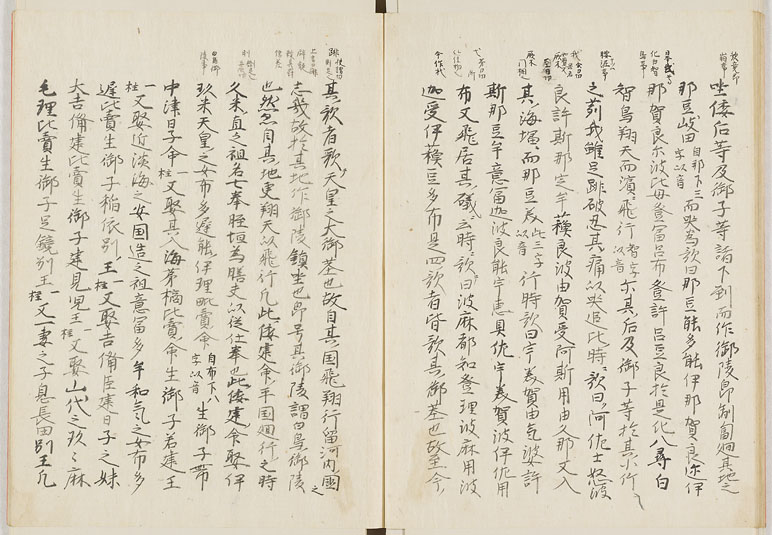 坐倭后等及御子等諸下到而作御陵即匍匐廻其地之
那豆岐田自那下三字以音而哭為歌曰那豆能多能伊那賀良迩伊
那賀良尓波比母登冨呂布登許呂豆良於是化八尋白
智鳥翔天而濱飛行智字以音尓其后及御子等於其小竹
之苅我雖足跳破忍其痛以哭追此時歌曰阿佐士怒波
良許斯那豆牟蘓良波由賀受阿斯用由久那又入
其海塩而那豆美此三字以音行時歌曰宇美賀由気婆許
斯那豆牟意冨迦波良能宇恵具佐宇美賀波伊佐用
布又飛居其礒之時歌曰波麻都知登理波麻用波
迦受伊蘓豆多布是四歌者皆歌其御葬也故至今
其歌者歌天皇之大御葬也故自其国飛翔行留河内國之
志幾故於其地作御陵鎮坐也即号其御陵謂白鳥御陵
也然亦自其地更翔天以飛行凢此倭建命平国廻行之時
久米直之祖名七拳脛恒為膳夫以従仕奉也此倭建命娶伊
玖米天皇之女布多遅能伊理毗賣命自布下八字以音生御子帯
中津日子命一柱又娶其入海弟橘比賣命生御子若建王
一柱又娶近淡海之安国造之祖意冨多牟和気之女布多
遅比賣生御子稲依別王一柱又娶吉備臣建日子之妹
大吉備建比賣生御子建見児王一柱又娶山代之玖々麻
毛理比賣生御子足鏡別王一柱又一妻之子息長田別王凢